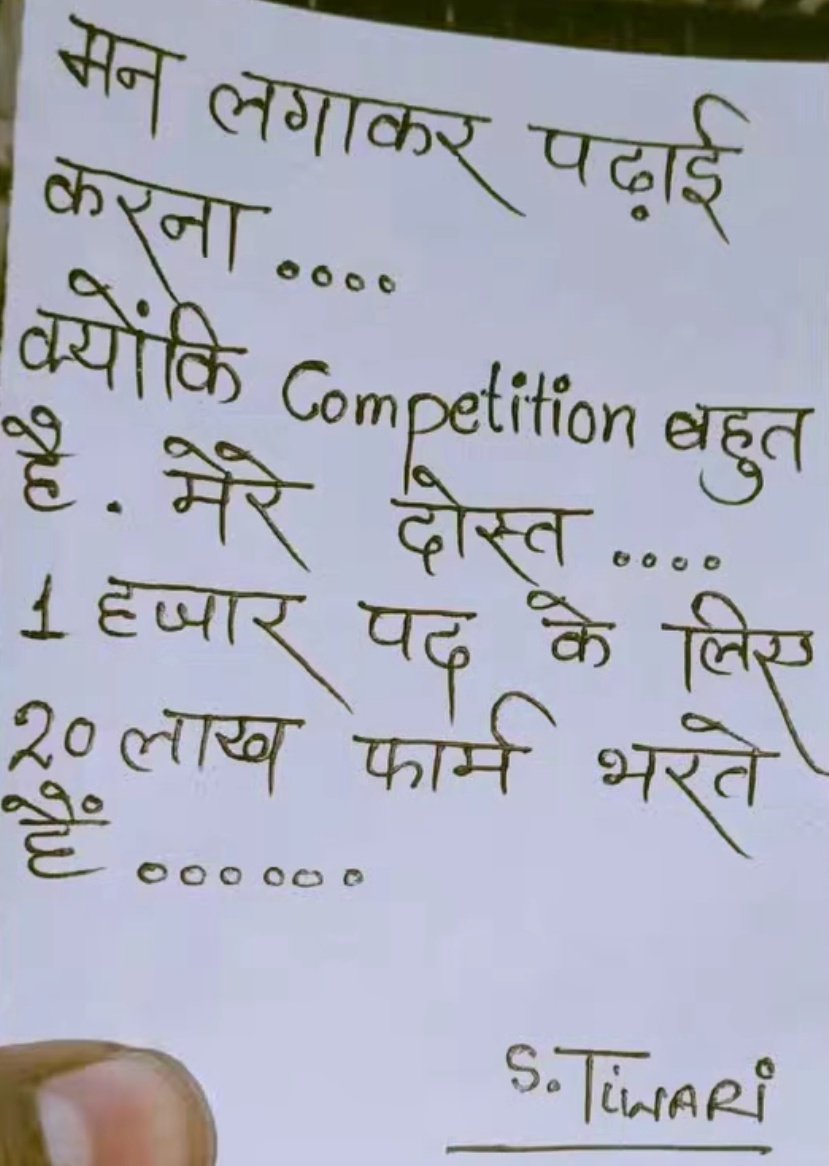 मन लगाकर पढ़ाई
करना ....
क्योंकि Competition बहुत
है . मेरे दोस्त ....
1 हजार पद के लिए
20 लाख फार्म भरते
हैं ......
S. TIWARI